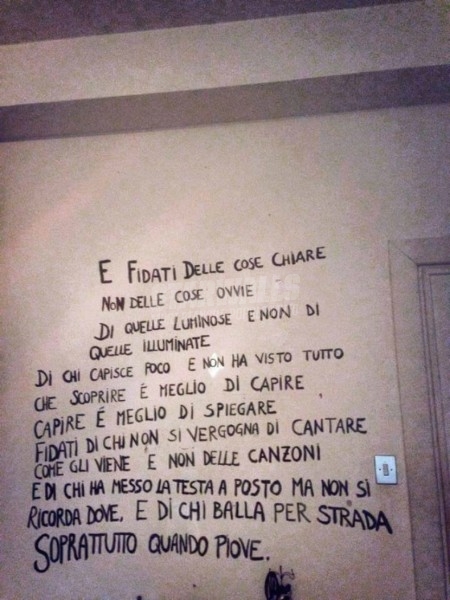 E FIDATI DELLE COSE CHIARE
NON DELLE COSE OVVIE
DI QUELLE LUMINOSE E NON DI
QUELLE ILLUMINATE
DI CHI CAPISCE POCO E NON HA VISTO TUTTO
CHE SCOPRIRE É MEGLIO DI CAPIRE
CAPIRE É MEGLIO DI SPIEGARE
FIDATI DI CHI NON SI VERGOGNA DI CANTARE
COME GLI VIENE E NON DELLE CANZONI
E DI CHI HA MESSO LA TESTA A POSTO MA NON SÌ
RICORDA DOVE, E DI CHI BALLA PER STRADA
SOPRATTUTTO QUANDO PIOVE.